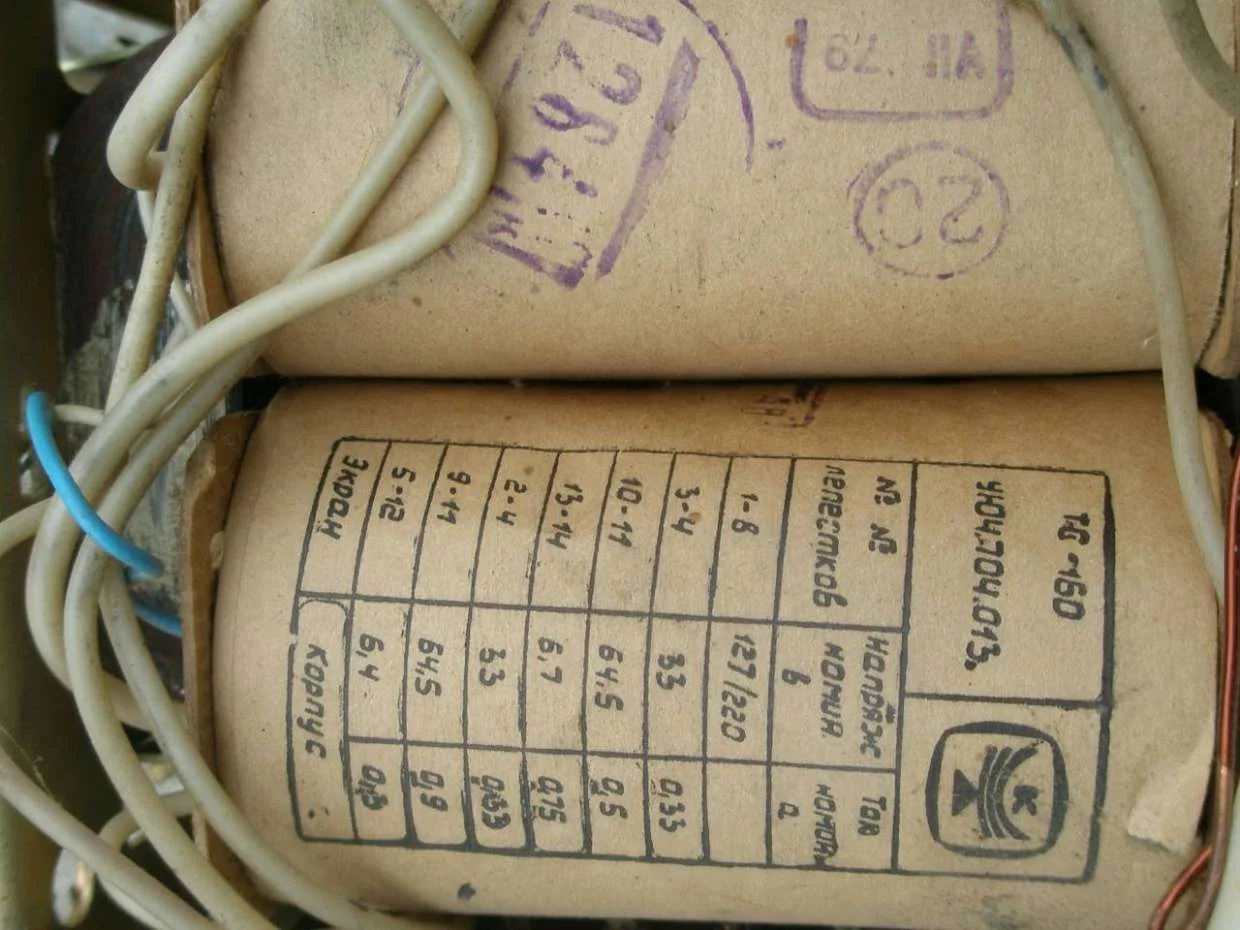 ТС-160
УЮ4.704.013.
К
№ № лепестков Напряж номин в Ток номин а
1-8 127/220
3-4 33 0,33
10-11 64,5 0,5
13-14 6,7 0,75
2-4 33 0,33
9-11 64,5 0,9
5-12 6,4 0,3
Экран корпус
VII 79
20